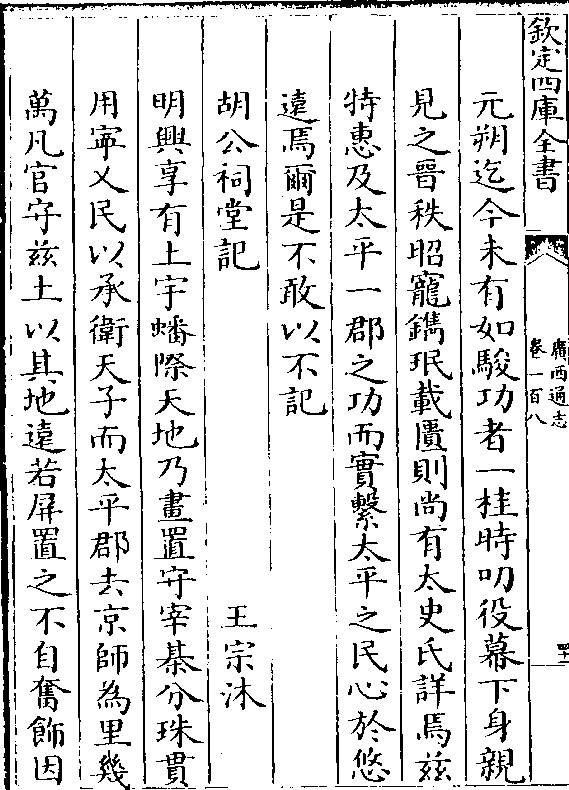 欽定四庫全書
廣西通志
卷一百八
元朔迄今未有如駿功者一桂時叨役幕下身親
見之晉秩昭寵鐫珉載匱則尚有太史氏詳焉兹
特惠及太平一郡之功而實繫太平之民心於悠
遠焉爾是不敢以不記
胡公祠堂記
王宗沐
明興享有上宇蟠際天地乃畫置守宰棊分珠貫
用寜乂民以承衛天子而太平郡去京師為里幾
萬凡官守兹土以其地遠若屏置之不自奮飾因